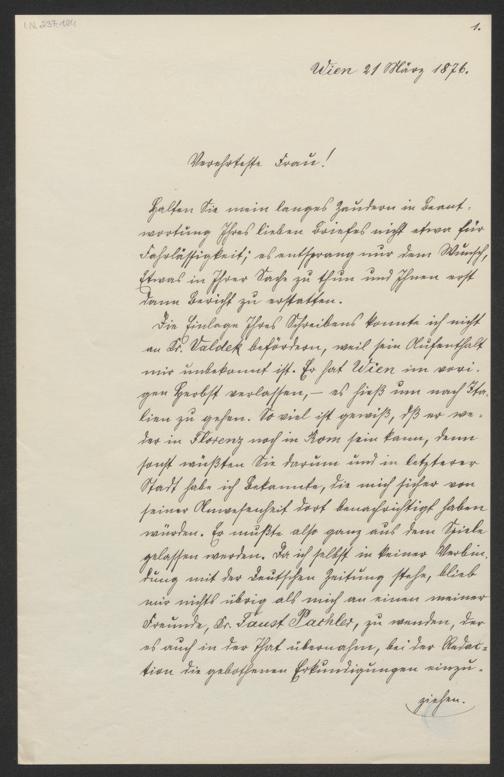 I.N. 237.104
1.
Wien 21 März 1876.
Verehrteste Frau!
Halten Sie mein langes Zaudern in Beant-
wortung Ihres lieben Briefes nicht etwa für
Fahrlässigkeit; es entsprang nur dem Wunsch,
Etwas in Ihrer Sache zu thun und Ihnen erst
dann Bericht zu erstatten.
Die Einlage Ihres Schreibens konnte ich nicht
an Dr. Valdek befördern, weil sein Aufenthalt
mir unbekannt ist. Er hat Wien im vori-
gen Herbst verlassen, – es hieß um nach Ita-
lien zu gehen. So viel ist gewiß, dß er we-
der in Florenz noch in Rom sein kann, denn
sonst wüßten Sie darum und in letzterer
Stadt habe ich Bekannte, die mich sicher von
seiner Anwesenheit dort benachrichtigt haben
würden. Er mußte also ganz aus dem Spiele
gelassen werden. Da ich selbst in keiner Verbin-
dung mit der Deutschen Zeitung stehe, blieb
mir nichts übrig als mich an einen meiner
Freunde, Dr. Faust Pachler, zu wenden, der
es auch in der That übernahm, bei der Redac-
tion die gebothenen Erkundigungen einzu-
ziehen.